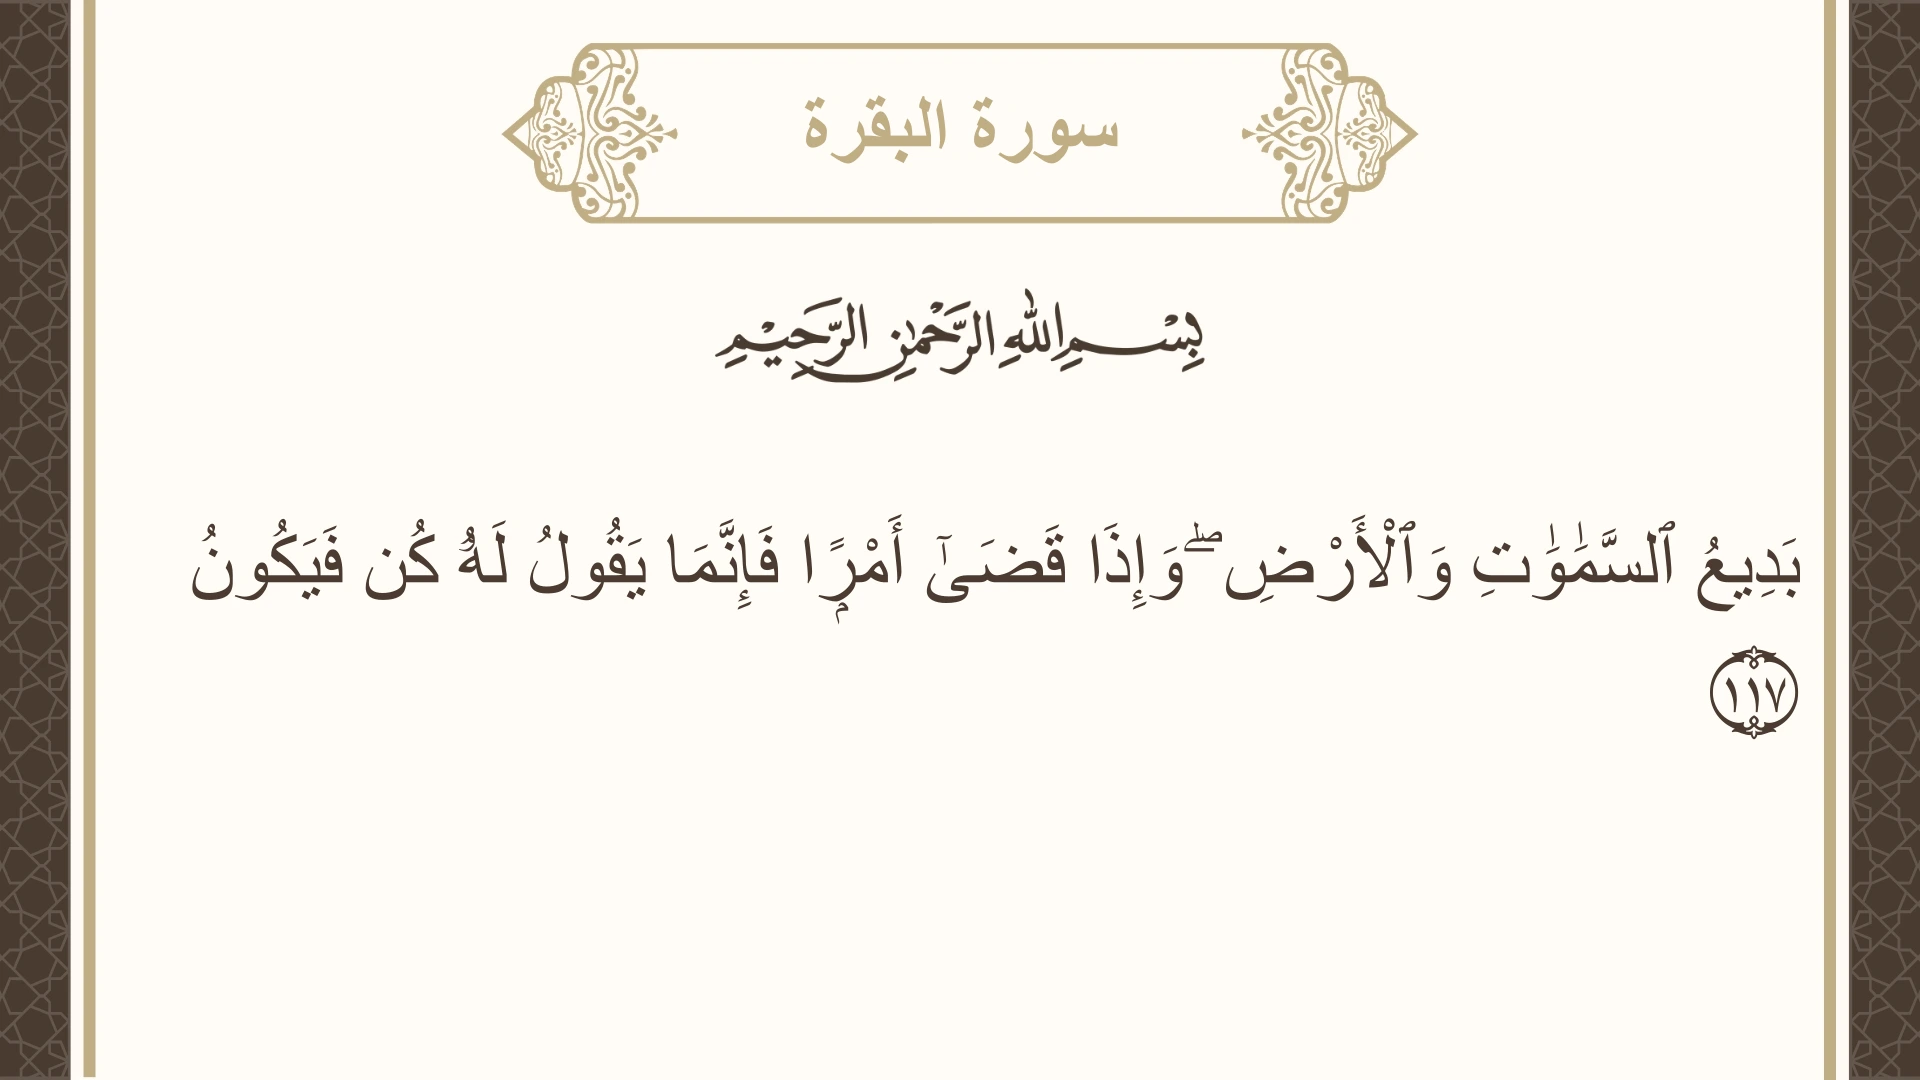 سورة البقرة
بِسْمِ اللهِ الرَّحْمٰنِ الرَّحِيْمِ
بَدِيعُ ٱلسَّمَٰوَٰتِ وَٱلْأَرْضِ ۖ وَإِذَا قَضَىٰٓ أَمْرًۭا فَإِنَّمَا يَقُولُ لَهُۥ كُن فَيَكُونُ
١١٧